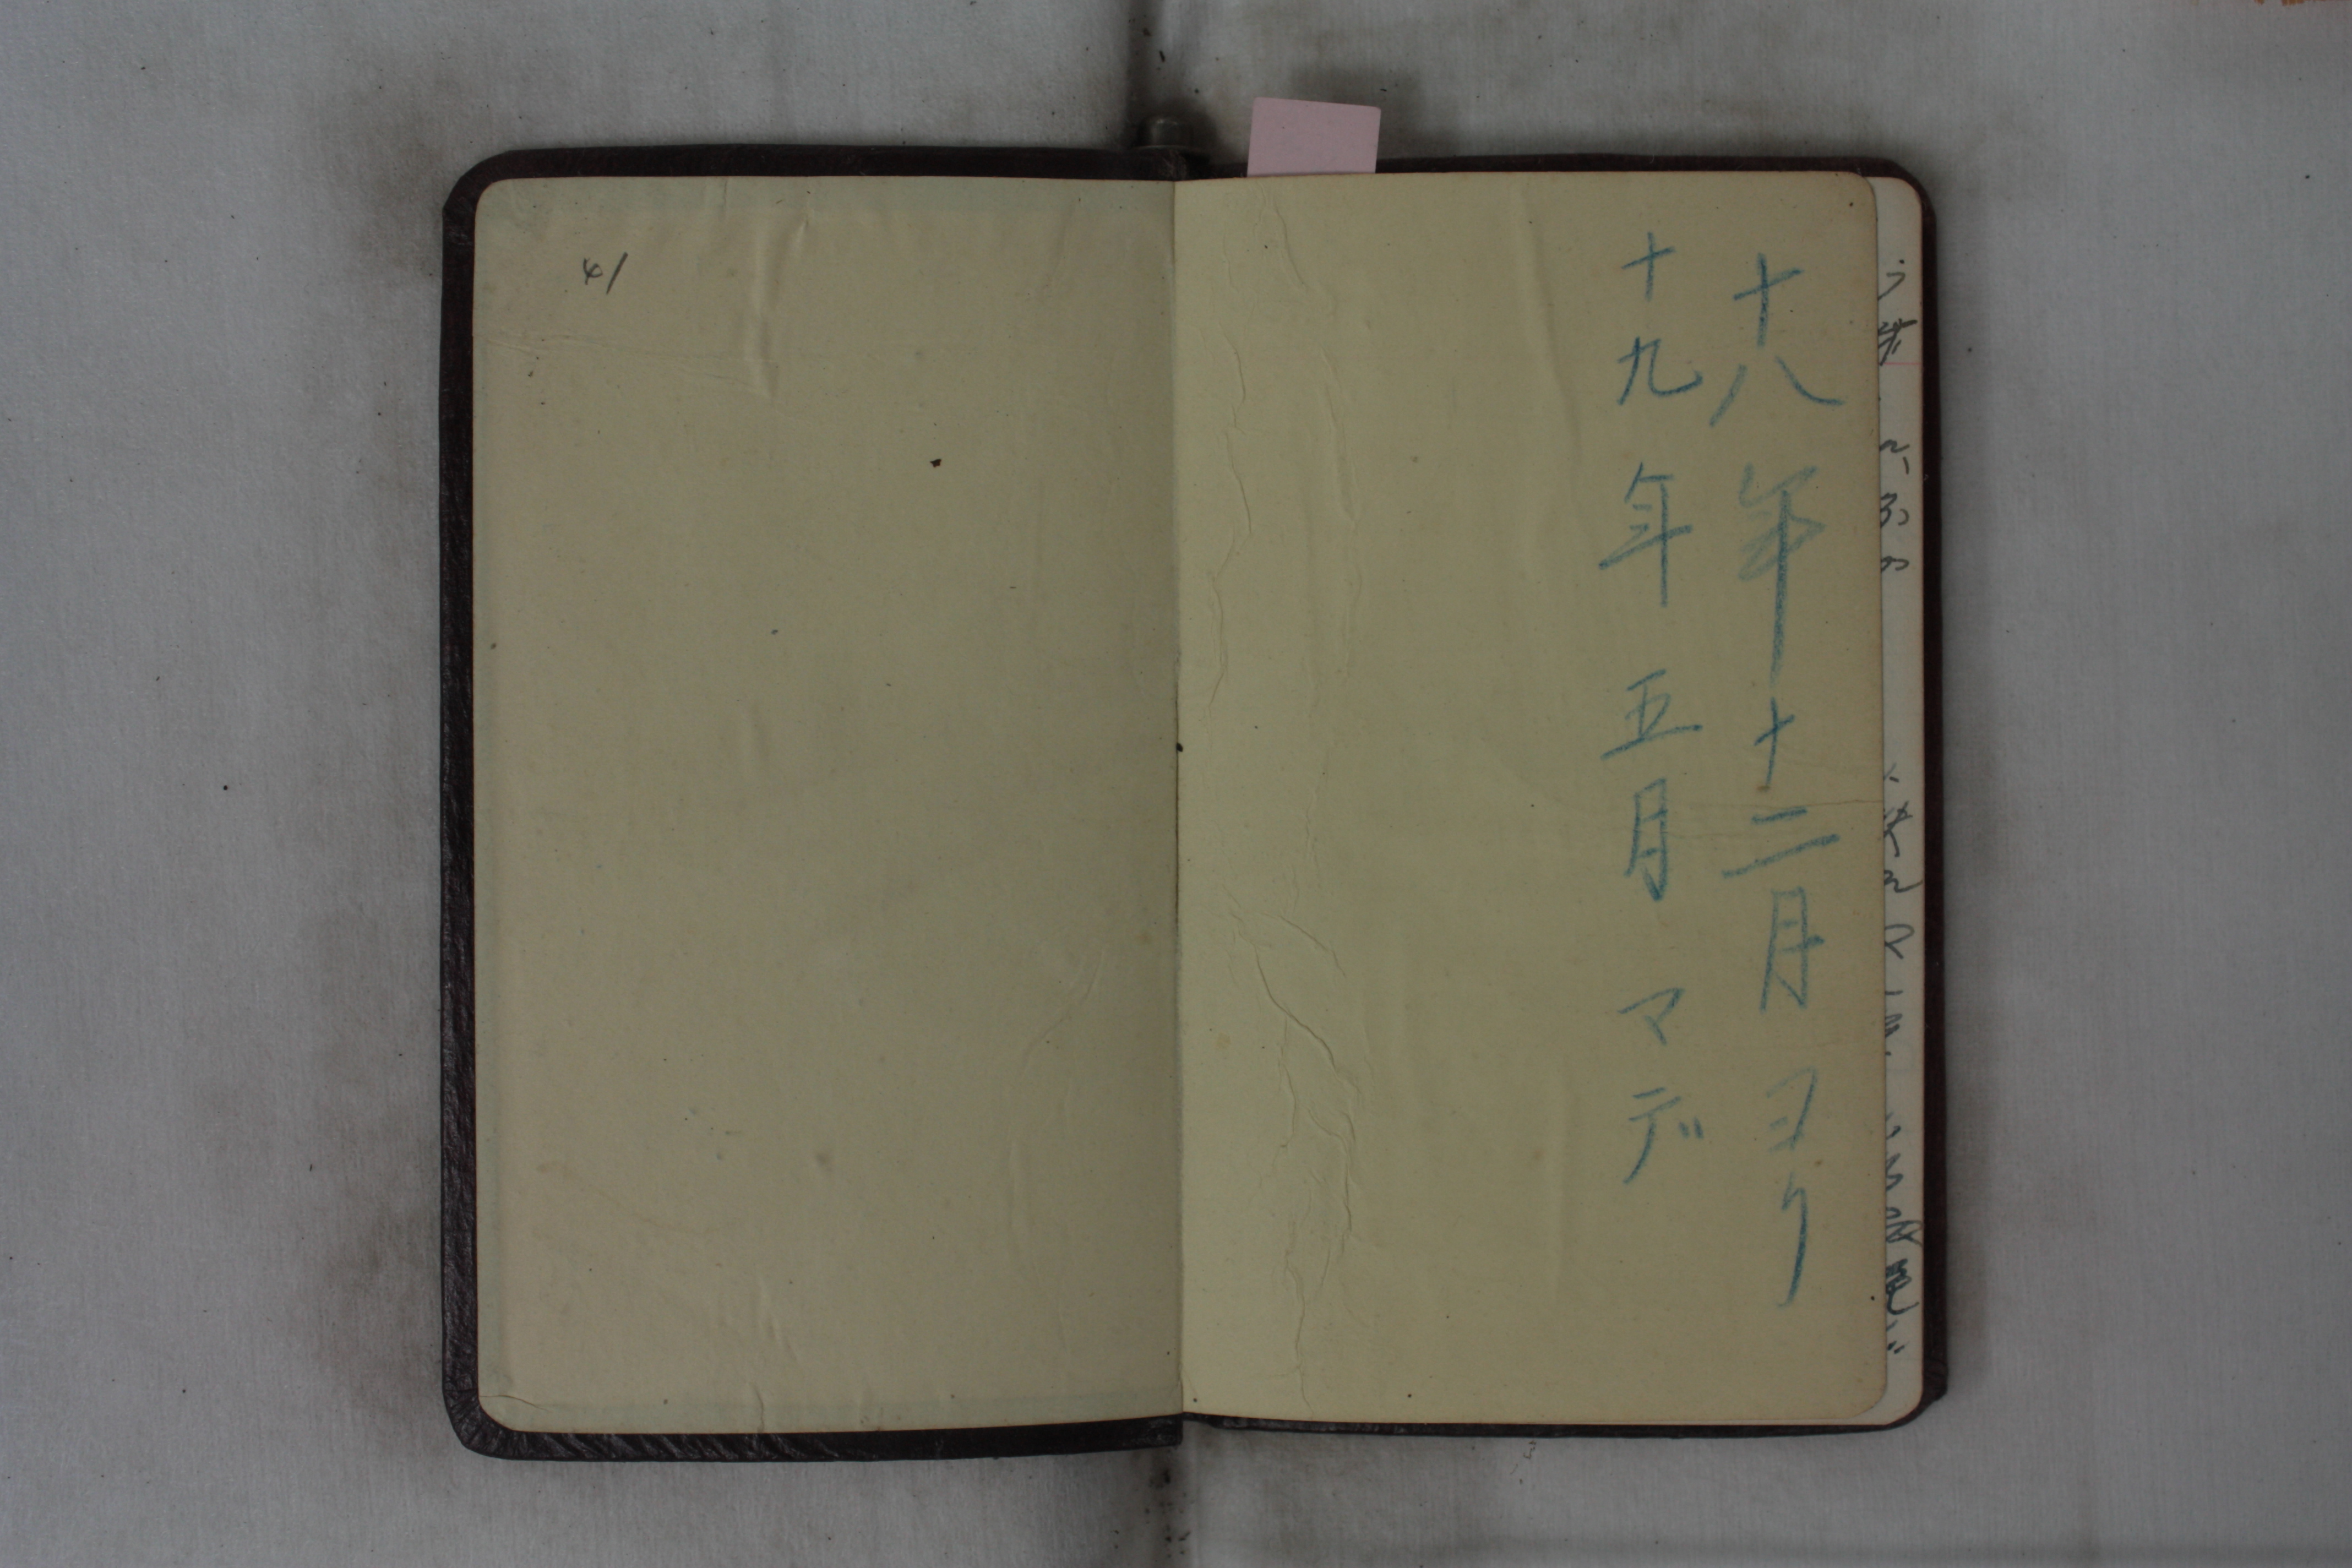 十八年十二月ヨリ
十九年五月マデ
41